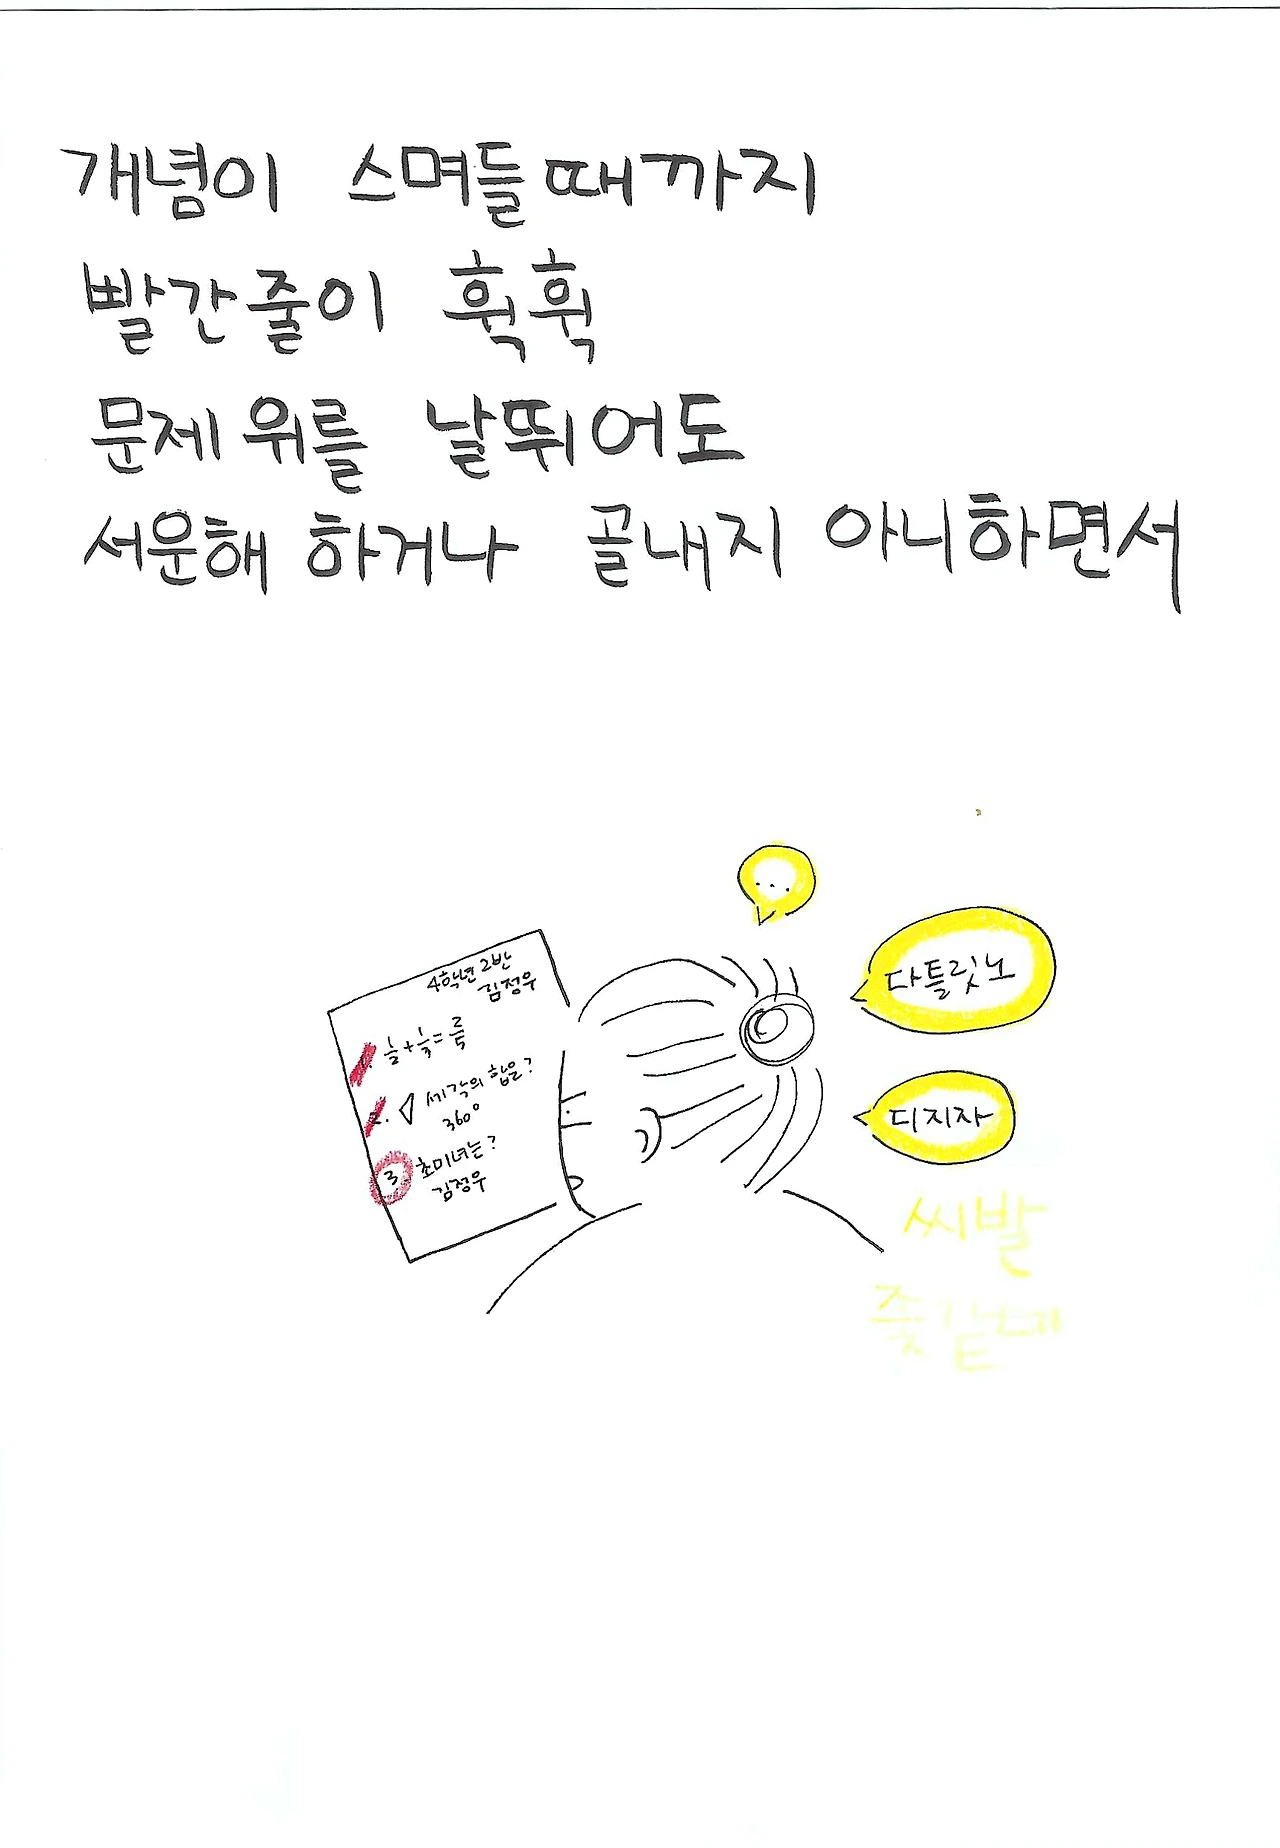 개념이 스며들때까지
빨간줄이 휙휙
문제 위를 날뛰어도
서운해 하거나 골내지 아니하면서
...
다틀릿노
디지자
4학년 2반
김정우
1. 1/2 + 1/3 = 2/5
2. ◁ 세각의 합은?
360°
3. 초미녀는?
김정우
씨발
좆같네